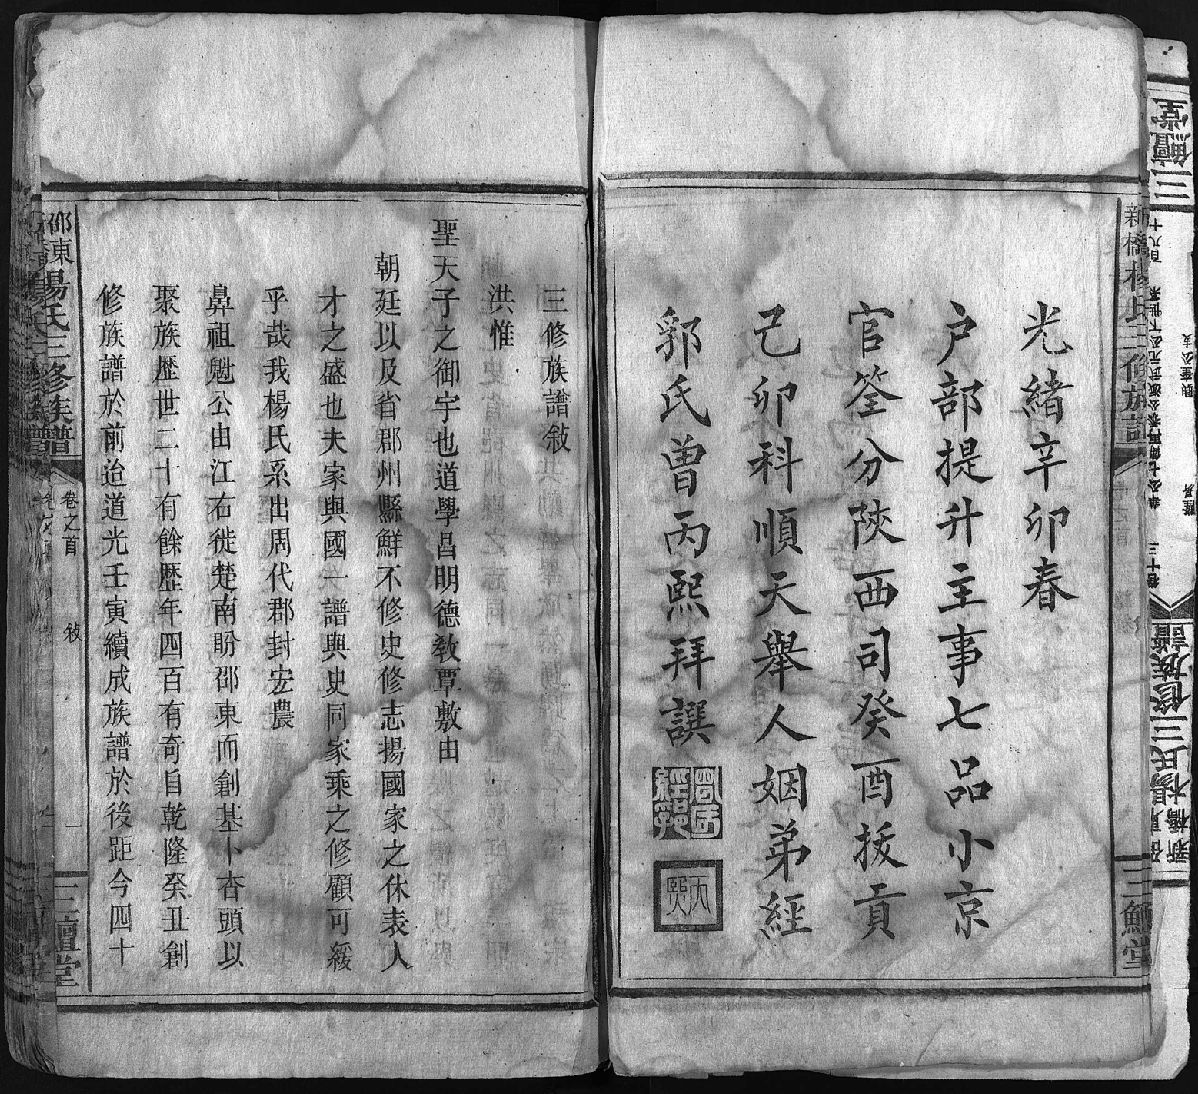 光緒辛卯春
戶部提升主事七品小京
官筌分陝西司癸酉拔貢
己卯科順天舉人姻弟經
郛氏曾丙熙拜譔
三修族譜敍
洪惟
聖天子之御宇也道學昌明德敎覃敷由
朝廷以及省郡州縣鮮不修史修志揚國家之休表人
才之盛也夫家與國一譜與史同家乘之修顧可緩
乎哉我楊氏系出周代郡封宏農
鼻祖勉公由江右徙楚南盼邵東而創基卜杏頭以
聚族歷世二十有餘歷年四百有奇自乾隆癸丑創
修族譜於前迨道光壬寅續成族譜於後距今四十
邵東楊氏三修族譜
卷之首
敍
一
三鱣堂
新橋楊氏三修族譜
三鱣堂